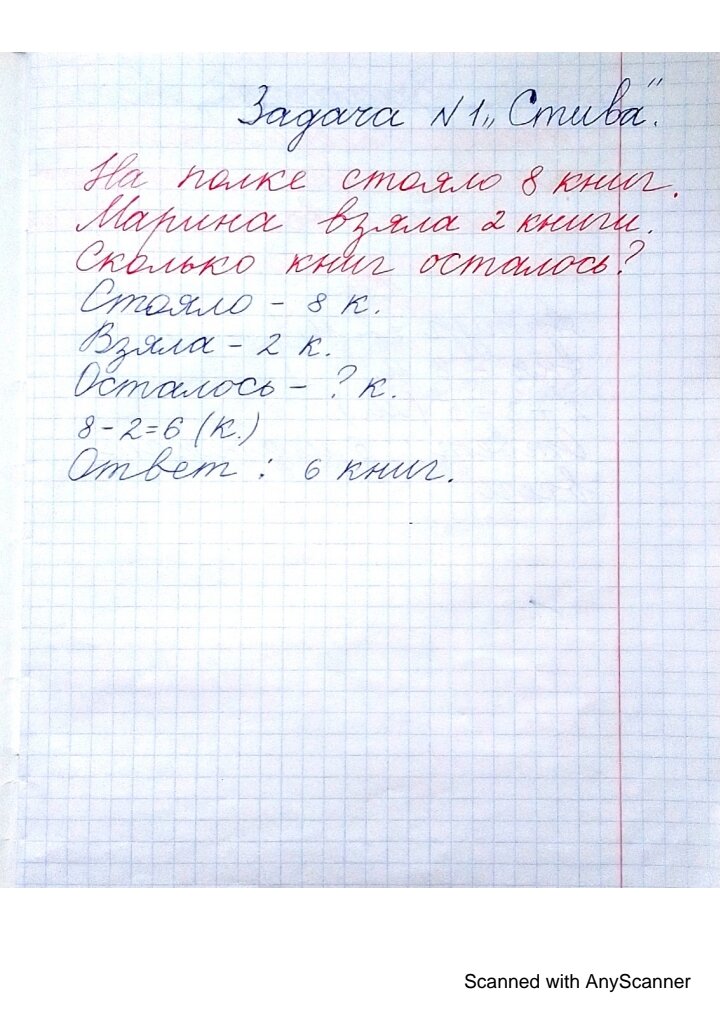 Задача N1 „Стива".
На полке стояло 8 книг.
Марина взяла 2 книги.
Сколько книг осталось?
Стояло - 8 к.
Взяла - 2 к.
Осталось - ? к.
8-2=6 (к.)
Ответ: 6 книг.
Scanned with AnyScanner